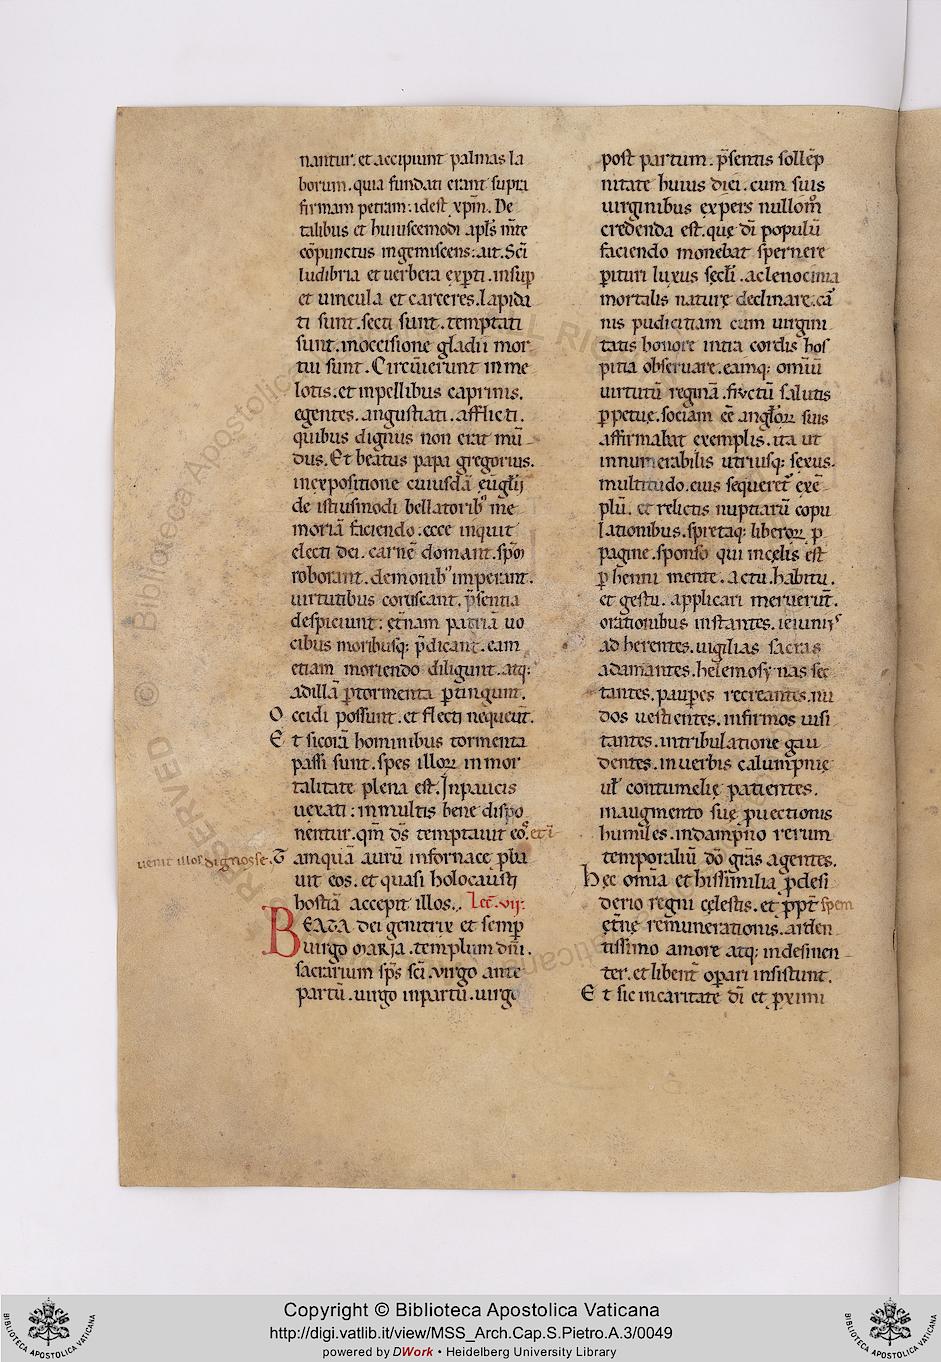 nantur. et accipiunt palmas la
borum. quia fundati erant supra
firmam petram: idest xp̄m. De
talibus et huiuscemodi apłs m̄te
cōpunctus ingemiscens: ait. Sc̄i
ludibria et uerbera exp̱ti. insup̱
et uincula et carceres. lapida
ti sunt. secti sunt. temptati
sunt. inoccisione gladii mor
tui sunt. Circūierunt inme
lotis. et inpellibus caprinis.
egentes. angustiati. afflicti.
quibus dignus non erat mū
dus. Et beatus papa gregorius.
inexpositione cuiusdā eūglii
de istiusmodi bellatorib; me
moriā faciendo. ecce inquit
electi dei. carnē domant. sp̄m
roborant. demonib; imperant.
uirtutibus coruscant. p̄sentia
despiciunt: et̄nam patriā uo
cibus moribusq; p̄dicant. eam
etiam moriendo diligunt. atq;
adillā p̱tormenta p̱tingunt.
Occidi possunt. et flecti nequeūt.
Et sicorā hominibus tormenta
passi sunt. spes illoꝝ inmor
talitate plena est. Inpaucis
uexati: inmultis bene dispo
nentur. qm̄ d̄s temptauit eos. et ī
uenit illos dignos se. Tamquā aurū infornace p̱ba
uit eos. et quasi holocausti
hostiā accepit illos. Lec̄. vij:
BEATA dei genitrix et semp̱
uirgo maria. templum dn̄i.
sacrarium sp̄s sc̄i. uirgo ante
partū. uirgo inpartū. uirgo
post partum. p̄sentis sollēp
nitate huius diei. cum suis
uirginibus expers nullom̊
credenda est. quę dī populū
faciendo monebat spernere
p̱ituri luxus sec̄li. aclenocinia
mortalis naturę declinare. cā
nis pudicitiam cum uirgini
tatis honore intra cordis hos
pitia obseruare. eamq; omīū
uirtutū reginā. fructū salutis
p̱petuę. sociam ee᷄ angl̄oꝝ suis
affirmabat exemplis. ita ut
innumerabilis utriusq; sexus.
multitudo. eius sequeret᷑ exē
plū. et relictis nuptiarū copu
lationibus. spretaq; liberoꝝ p̱
pagine. sponso qui incęlis est
p̱henni mente. actu. habitu.
et gestu. applicari meruerūt.
orationibus instantes. ieiuniis
adherentes. uigilias sacras
adamantes. helemosynas sec
tantes. paup̱es recreantes. nu
dos uestientes. infirmos uisi
tantes. intribulatione gau
dentes. inuerbis calumpnię
uł contumelię patientes.
inaugmento suę p̱uectionis
humiles. indampno rerum
temporaliū dō grās agentes.
Hęc omīa et hissimilia p̱desi
derio regni cęlestis. et p̱pt̄ spem
et̄nę remunerationis. arden
tissimo amore atq; indesinen
ter. et libent᷑ op̱ari insistunt.
Et sic incaritate dī et p̱ximi
Copyright © Biblioteca Apostolica Vaticana
http://digi.vatlib.it/view/MSS_Arch.Cap.S.Pietro.A.3/0049
powered by DWork • Heidelberg University Library
BIBLIOTECA APOSTOLICA VATICANA
BIBLIOTECA APOSTOLICA VATICANA